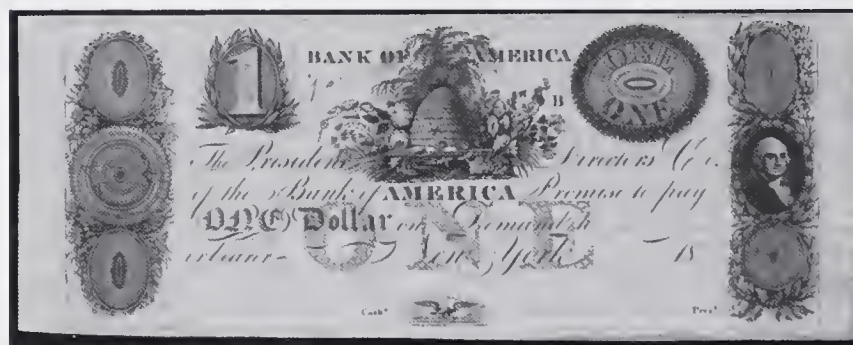 BANK OF AMERICA
1
ONE
ONE
B
The President Directors & Co.
of the Bank of AMERICA Promise to pay
ONE Dollar on Demand
ONE
New York 18
Cash.r Pres.t